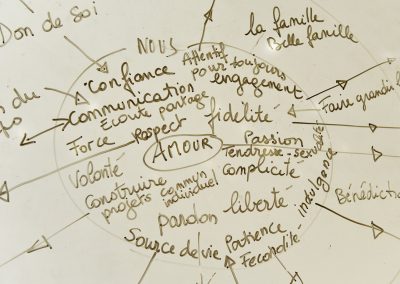 Don de Soi
la famille
Belle famille
NOUS
Attentif
Confiance
pour toujours
engagement
Communication
Ecoute partage
fidélité
Faire grandir
Force
respect
AMOUR
Passion
Tendresse - sexualité
Complicité
Indulgence
Volonté
Construire
projets commun
individuel
pardon
liberté
Bénédiction
Source de vie
Patience
Fecondité